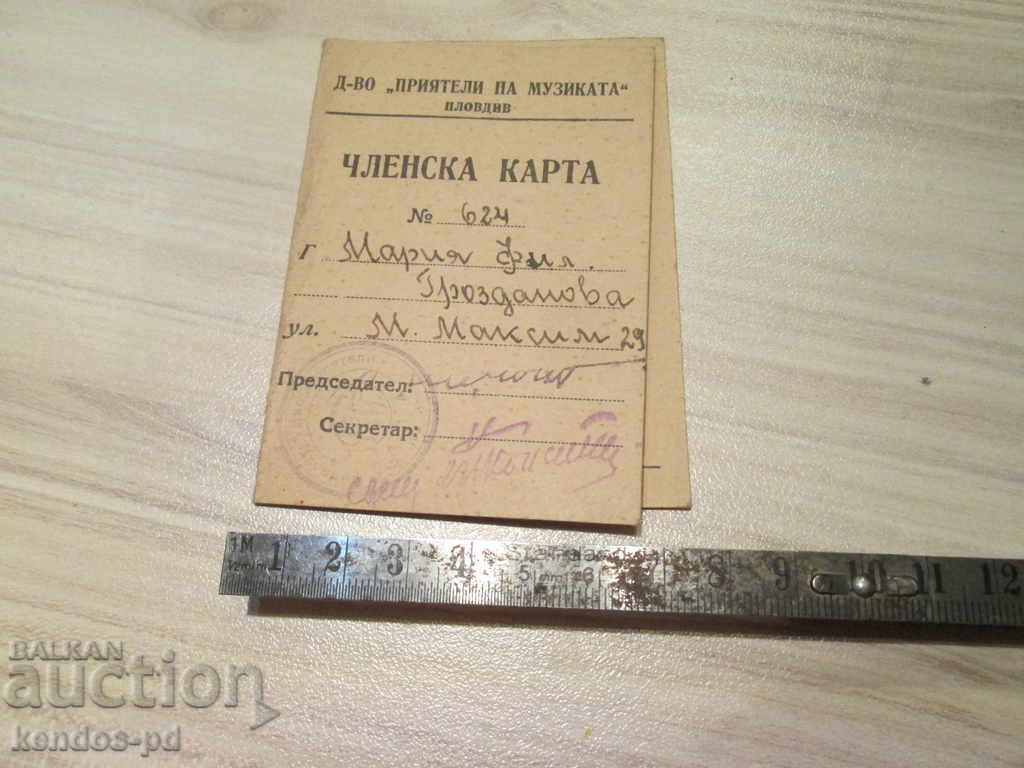 Д-ВО „ПРИЯТЕЛИ НА МУЗИКАТА“
ПЛОВДИВ
ЧЛЕНСКА КАРТА
№ 624
Г Мария Фил.
Грозданова
ул. М. Максим 29
Председател:
Секретар:
1M 1 2 3 4 5 6 8 9 10 11 12
BALKAN
auction
kendos-pd